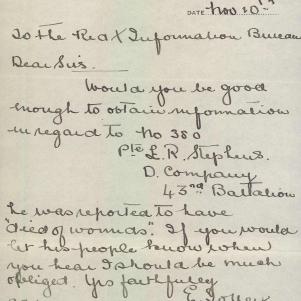 DATE Nov 20th
To the Red X Information Bureau
Dear Sirs.
Would you be good
enough to obtain information
in regard to No 380
Pte L. R. Stephens.
D. Company
43rd Battalion
he was reported to have
"died of wounds". If you would
let his people know when
you hear I should be much
obliged. Yrs faithfully